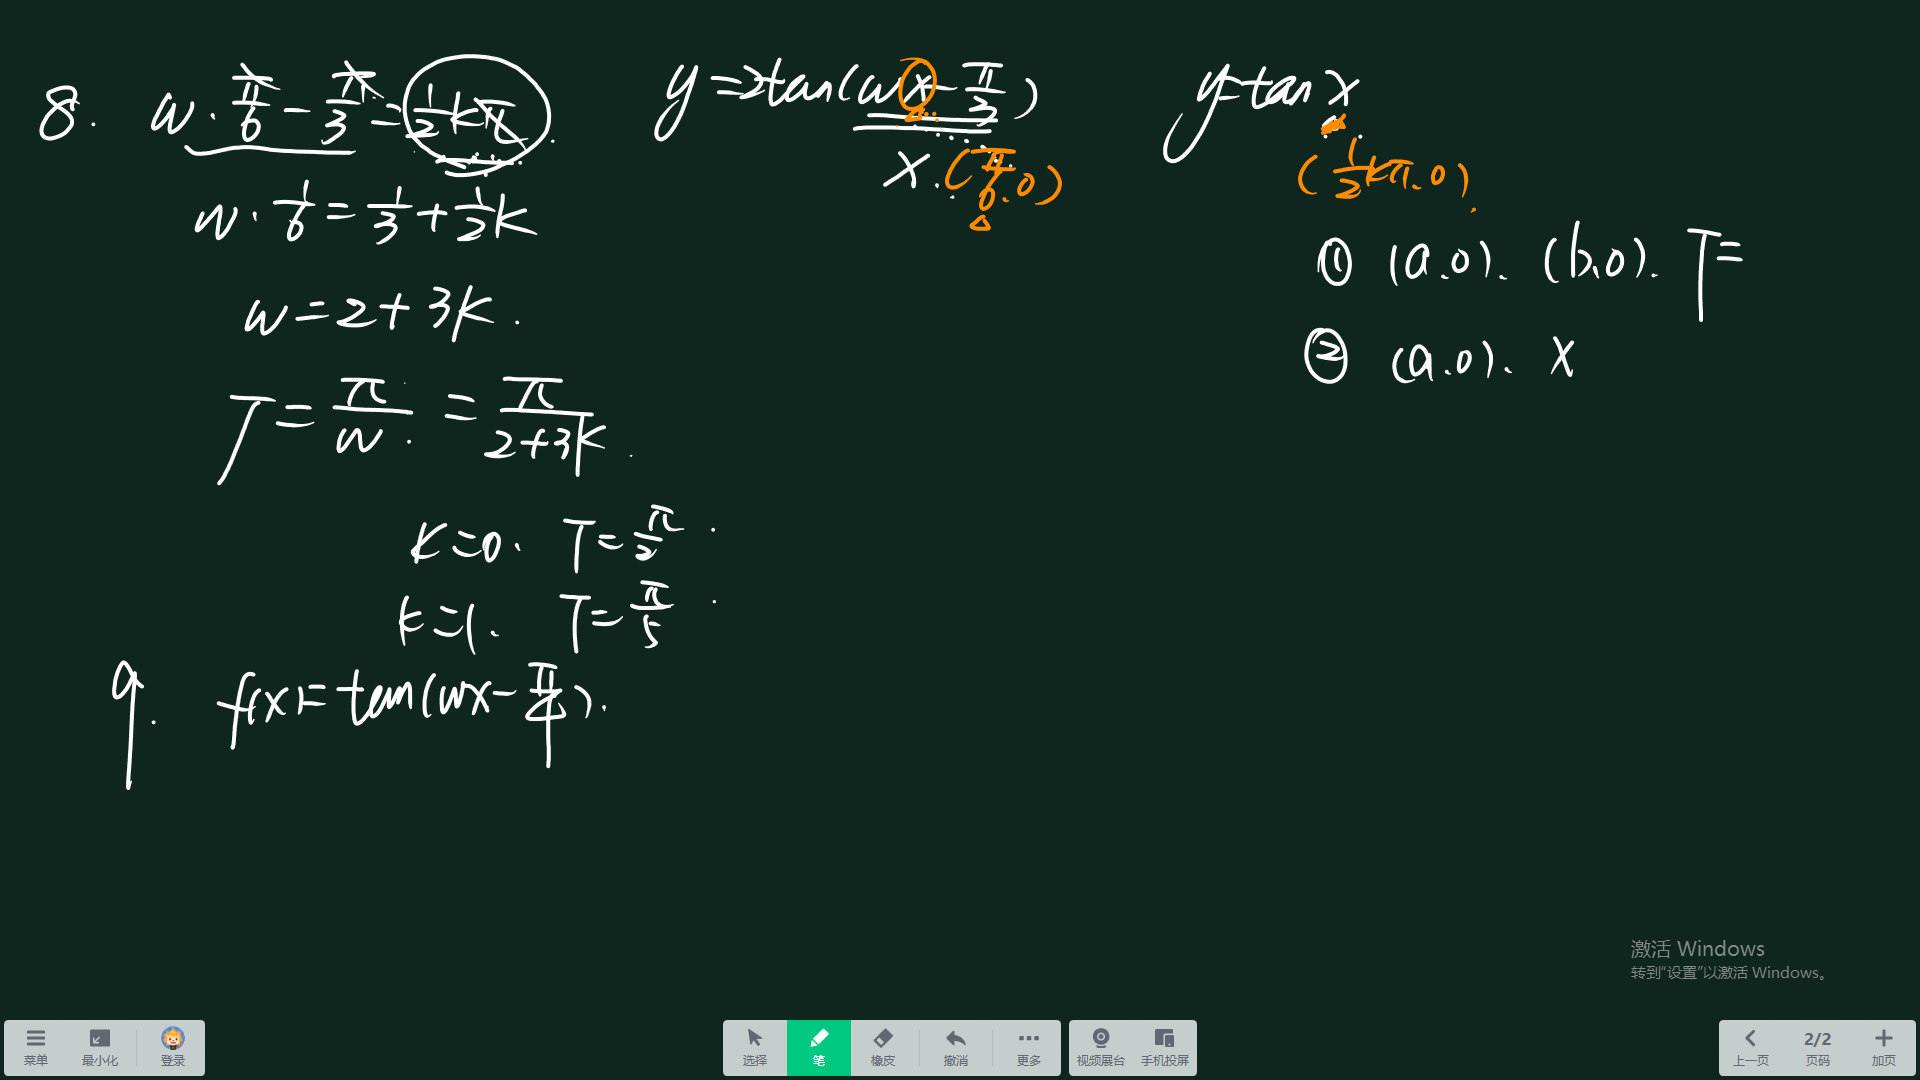 8. w·π/6 - π/3 = 1/2kπ.
w·1/6 = 1/3 + 1/2k
w = 2 + 3k.
T = π/w. = π/(2+3k).
k=0. T=π/2.
k=1. T=π/5.
9. f(x)=tan(wx-π/4).
y=2tan(wx-π/3)
x. (π/6.0)
y=tanx
(1/2kπ.0).
① (a.0). (b.0). T=
② (a.0). x
激活 Windows
转到“设置”以激活 Windows。
菜单 最小化 登录 选择 笔 橡皮 撤消 更多 视频展台 手机投屏 上一页 2/2 页码 加页